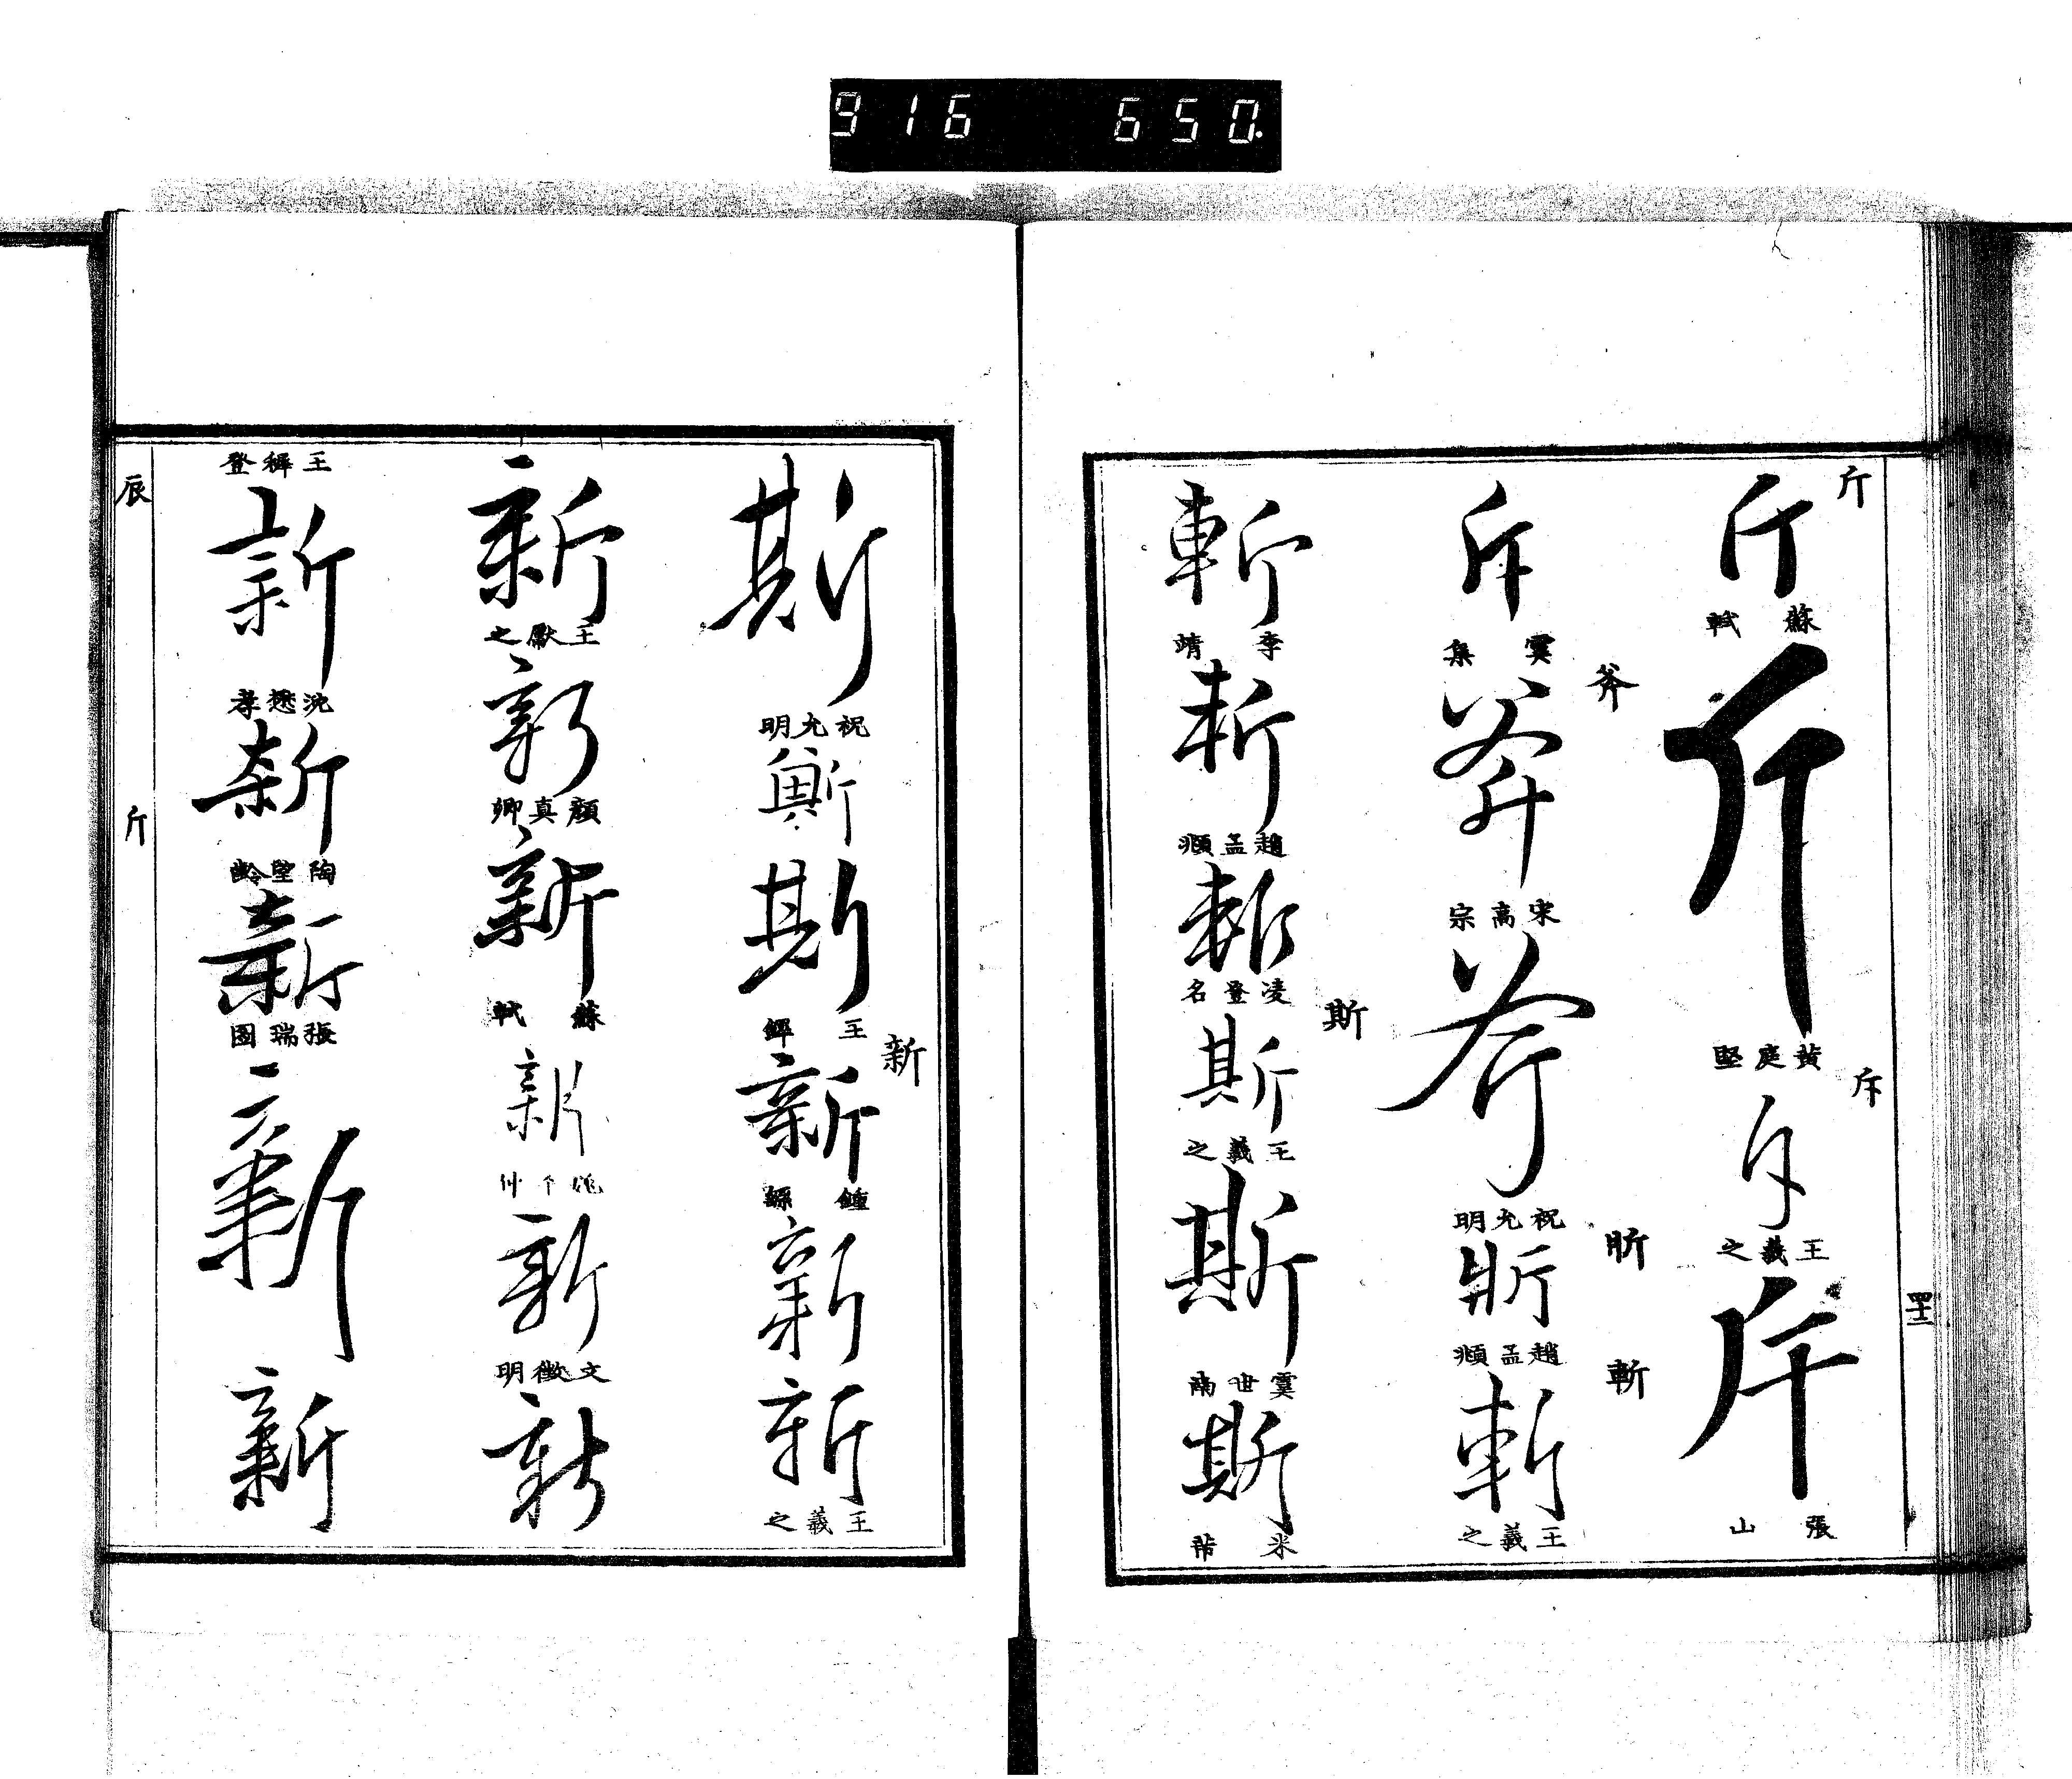 916 650.
斤
斤
蘇軾
斤
黃庭堅
斥
斥
王羲之
斥
張山
斥
虞集
斧
斧
宋高宗
斧
祝允明
斨
趙孟頫
斬
斬
王羲之
斬
李靖
斬
趙孟頫
斬
凌登名
斯
斯
王羲之
斯
虞世南
斯
米芾
四十二
斯
祝允明
斯
斯
王鐸
新
新
鍾繇
新
新
王羲之
新
王獻之
新
顏真卿
新
蘇軾
新
新
文徵明
新
王穉登
新
沈懋孝
新
陶望齡
新
張瑞圖
新
新
辰
斤